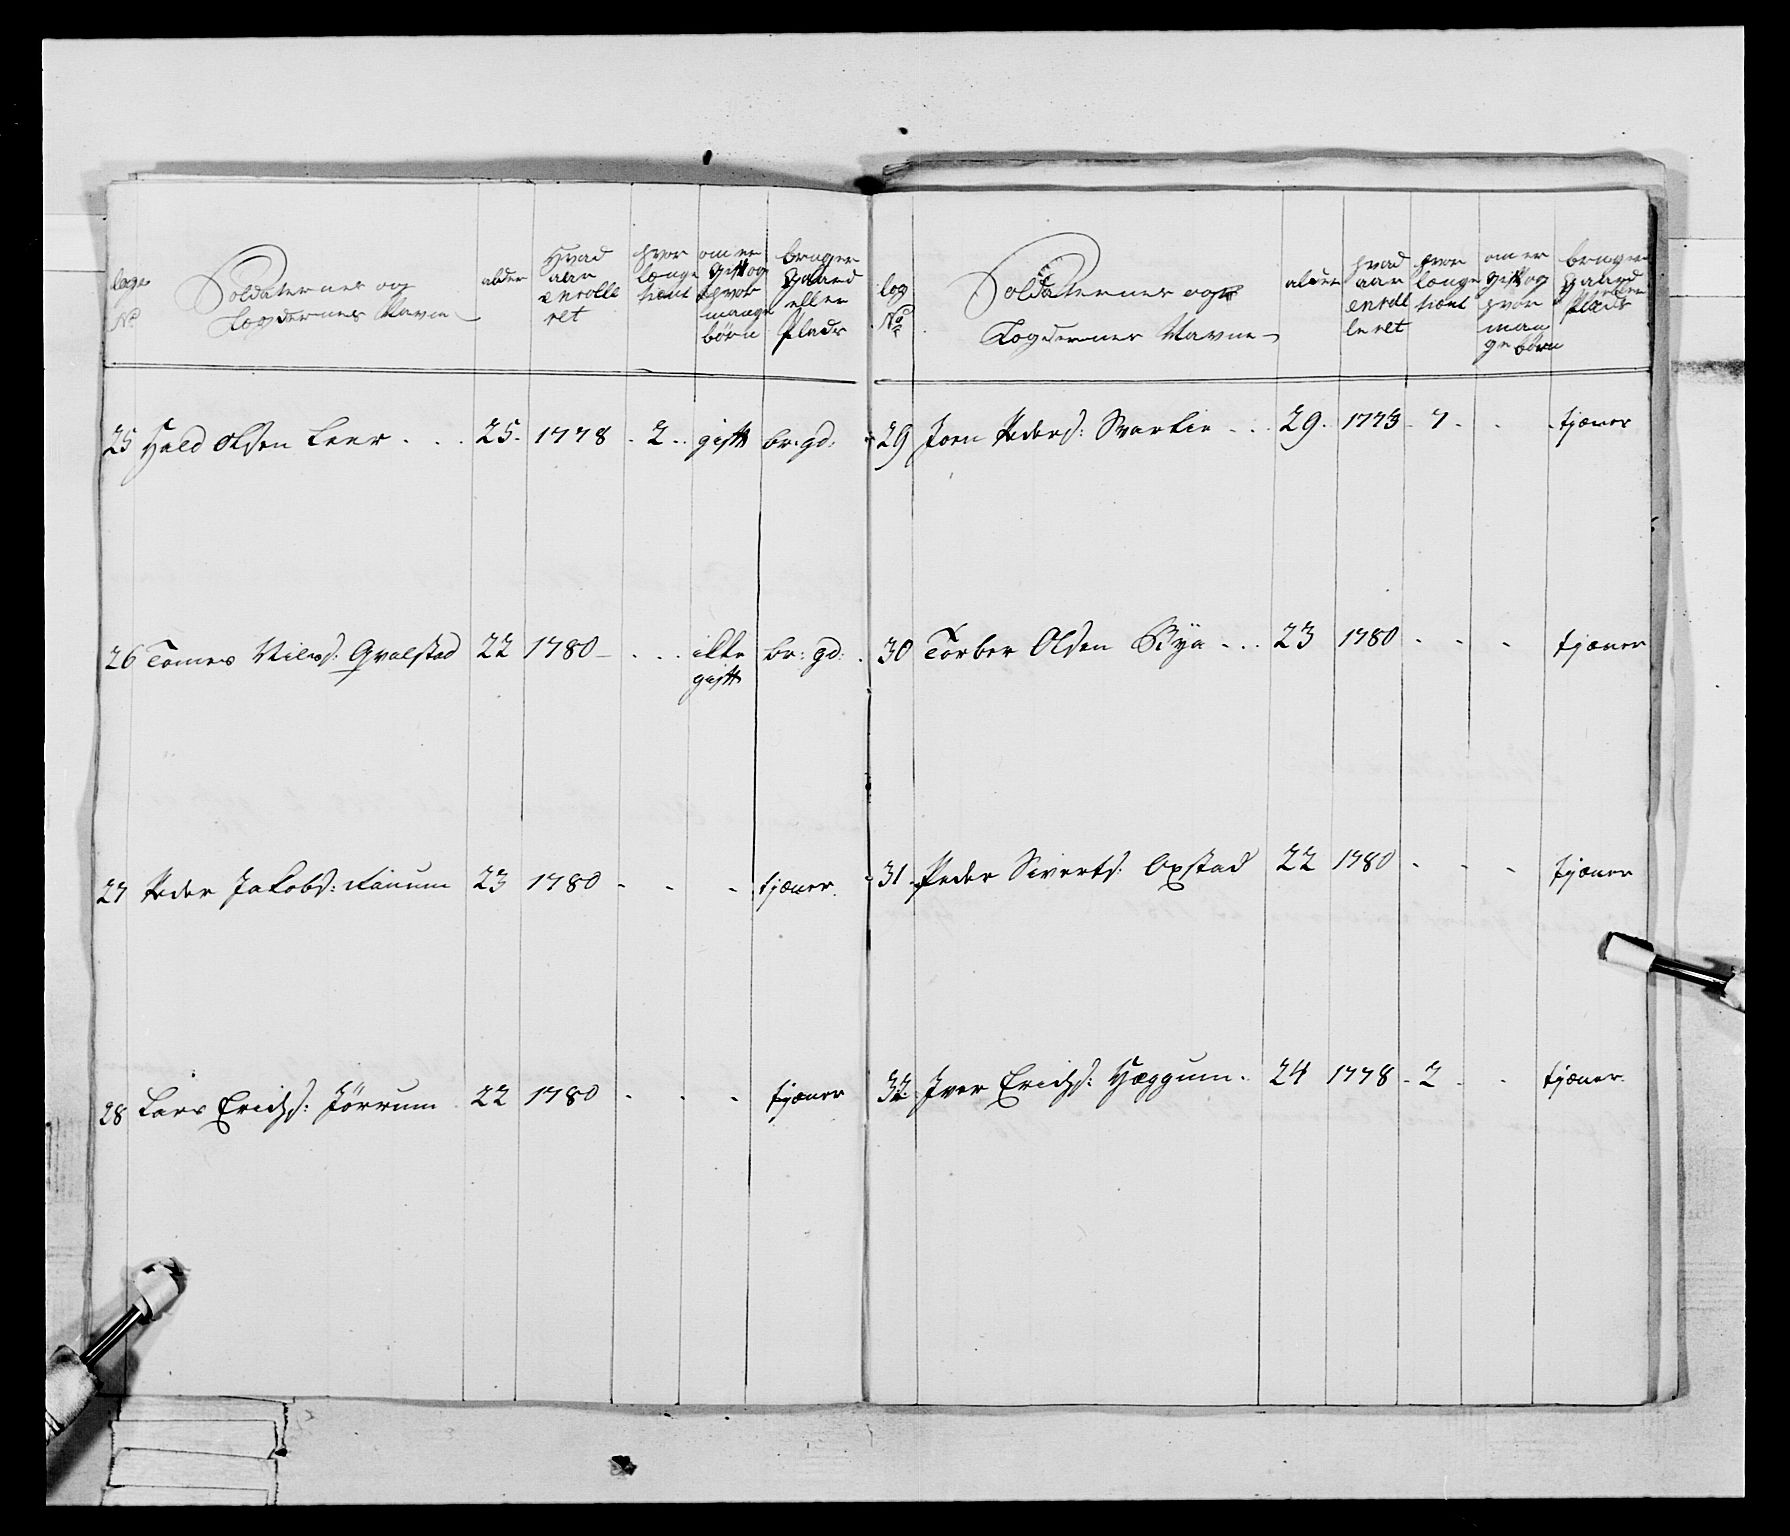 Lægs No
Soldaternes og Lægdernes Navne
alder
Hvad aar enrolleret
hvor længe tient
om er gift og hvor mange børn
bruger Gaard eller Plads
25 Hald Olsen Leer . . . 25. 1778 . 2 . . gift br: gd:
26 Tomes Nils: Qvalstad 22 1780 – . . . ikke gift br: gd:
27 Peder Jakobs: Fanum 23 1780 - - - tjæner
28 Lars Erichs: Jørrum 22 1780 - - - tjæner
Læg No
Soldaternes og Lægdernes Navne
alder
hvad aar enrolleret
hvor længe tient
om er gift og hvor mange børn
bruger gaard eller Plads
29 Joen Peders: . . . 29. 1773 . 7 . . . tjæner
30 Torber Olsen Bye . . . 23 1780 - - - tjæner
31 Peder Siverts: Oxstad 22 1780 - - - tjæner
32 Iver Erichs: Hæggum . 24 1778 . 2 . . tjæner